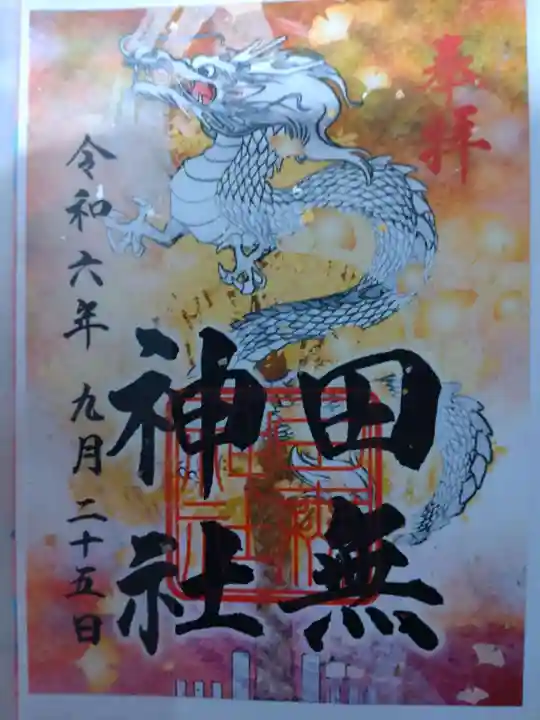 奉拝
田無
神社
令和六年 九月二十五日